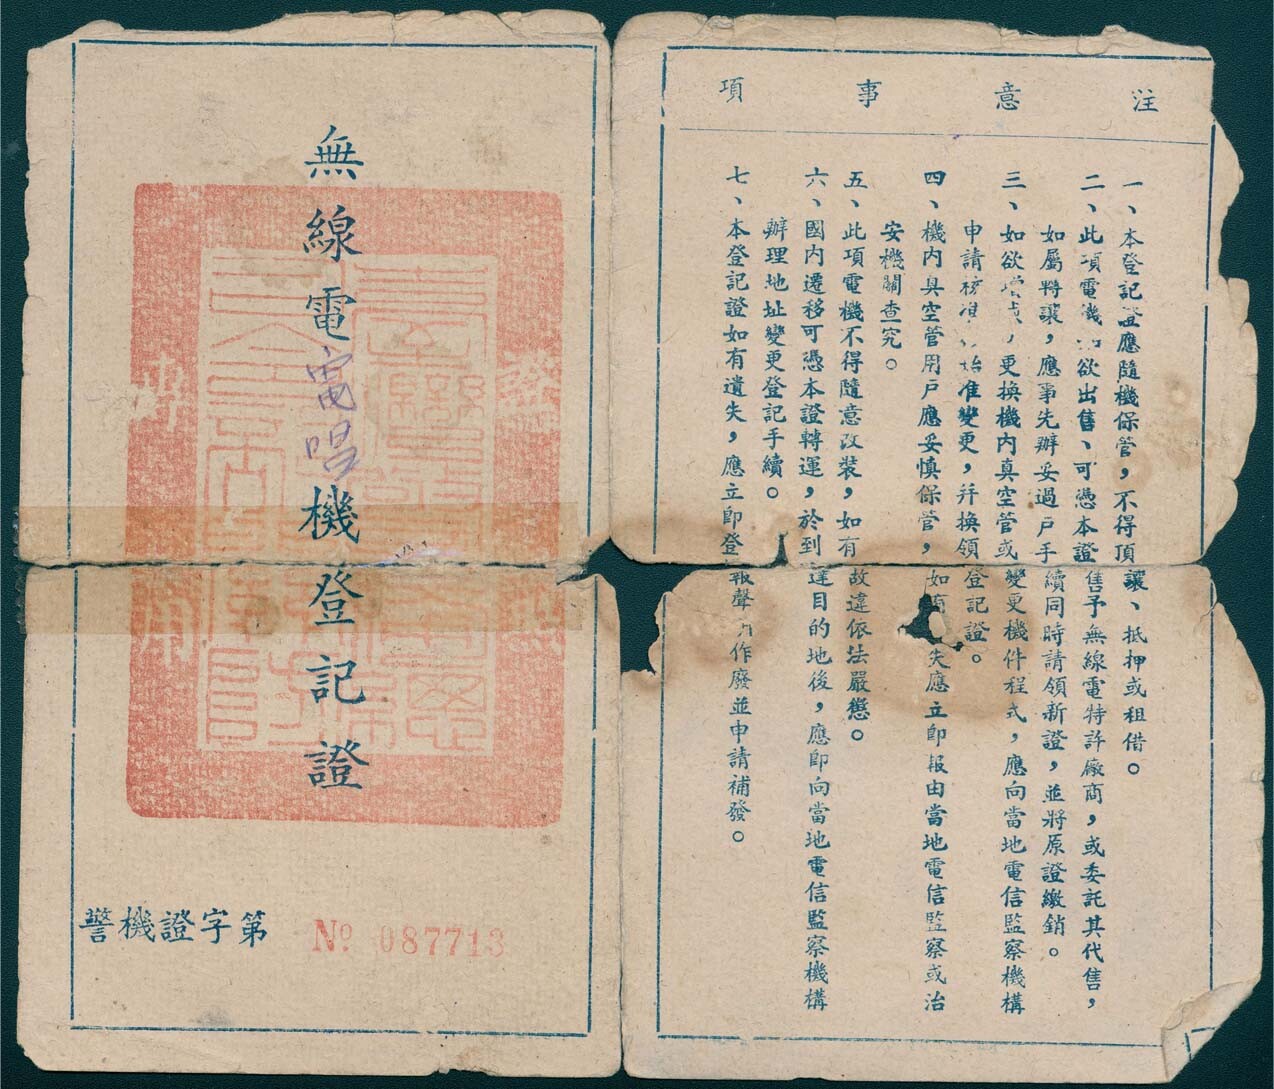 無線電電唱機登記證
警機證字第 № 087713
注意事項
一、本登記證應隨機保管，不得頂讓、抵押或租借。
二、此項電機如欲出售、可憑本證售予無線電特許廠商，或委託其代售，
如屬轉讓，應事先辦妥過戶手續同時請領新證，並將原證繳銷。
三、如欲增減，更換機內真空管或變更機件程式，應向當地電信監察機構
申請核准 始准變更，并換領登記證。
四、機內真空管用戶應妥慎保管，如 失應立即報由當地電信監察或治
安機關查究。
五、此項電機不得隨意改裝，如有故違依法嚴懲。
六、國內遷移可憑本證轉運，於到達目的地後，應即向當地電信監察機構
辦理地址變更登記手續。
七、本登記證如有遺失，應立即登報聲明作廢並申請補發。